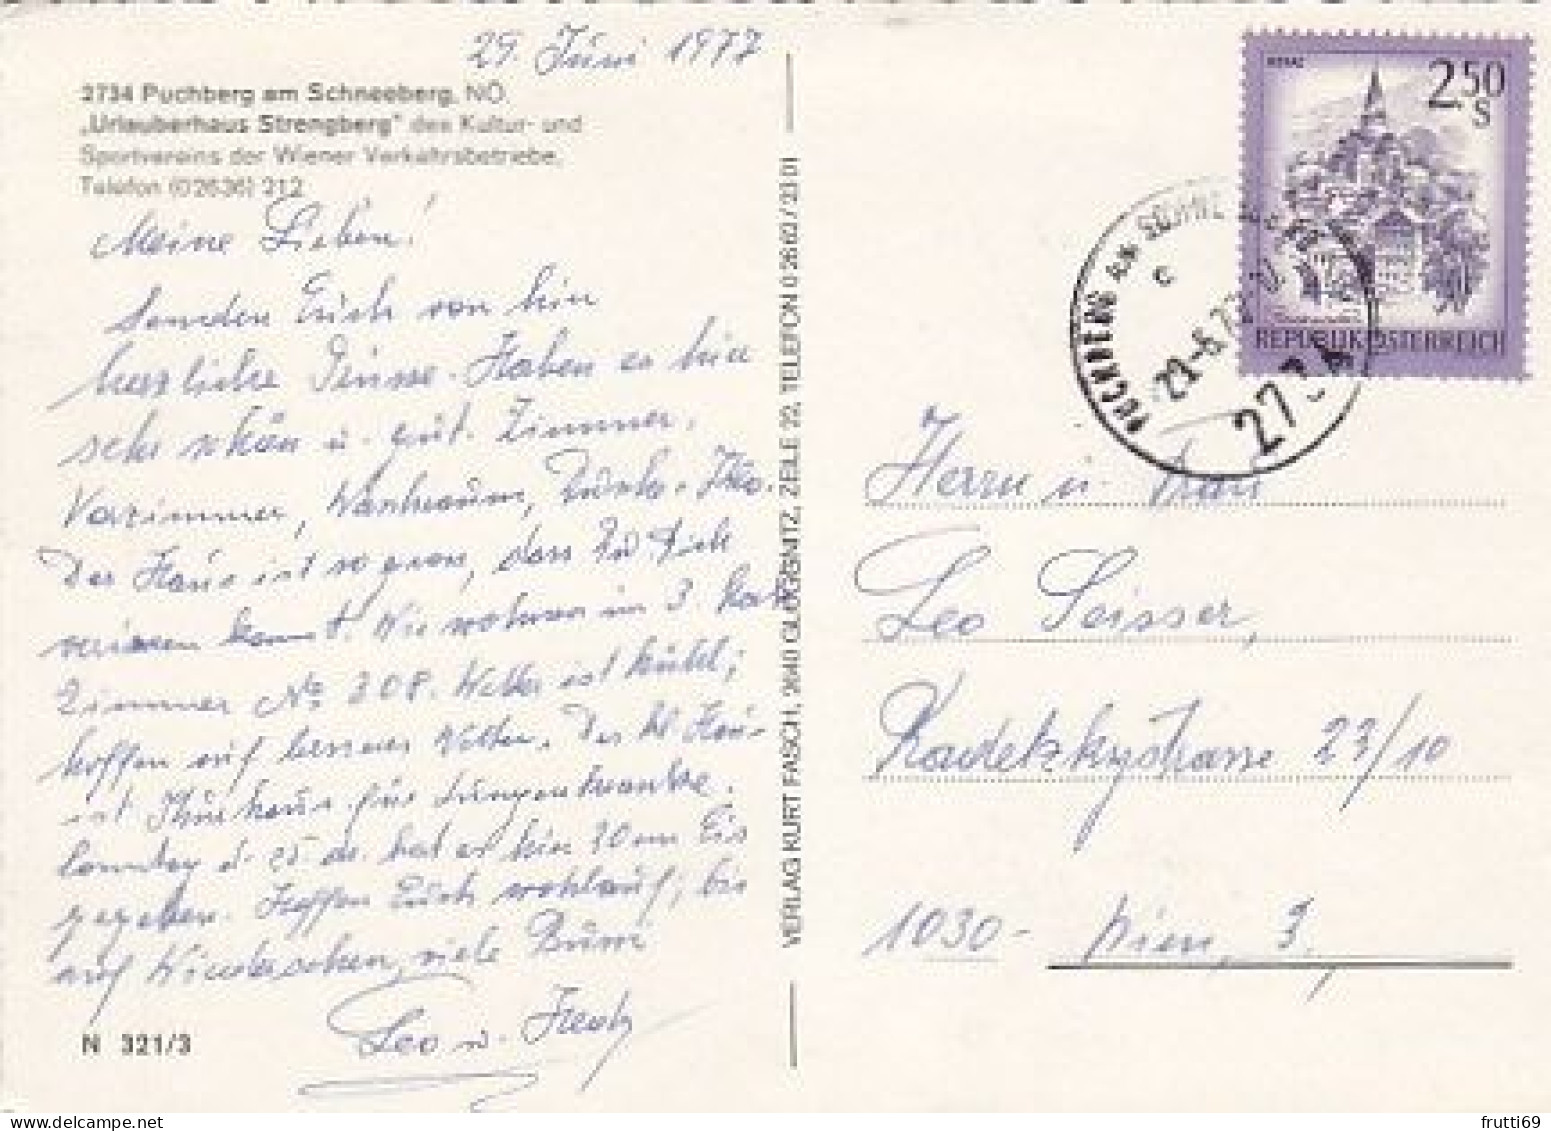 29. Juni 1977
2734 Puchberg am Schneeberg, NÖ.
„Urlauberhaus Strengberg" des Kultur- und
Sportvereins der Wiener Verkehrsbetriebe.
Telefon (02636) 212
Meine Lieben!
Senden Euch von hier
herzliche Grüsse. Haben es hier
sehr schön u. gut. Zimmer,
Vorzimmer, Waschraum, Dusche, Klo.
Das Haus ist so gross, dass Du Dich
verirren kannst. Wir wohnen im 3. Stock
Zimmer No 308. Wetter ist kühl;
hoffen auf besseres Wetter. Das
ist für Lungenkranke.
hat es hier 20 cm Eis
gegeben. Hoffen Euch wohlauf, bis
auf Wiedersehen, viele Bussi
Leo u.
N 321/3
VERLAG KURT FASCH, 2640 GLOGGNITZ, ZEILE 22, TELEFON 0 26 62 / 23 01
HERAS
2.50
S
REPUBLIK ÖSTERREICH
PUCHBERG AM SCHNEEBERG
c
29.-6.77
2734
Herrn u. Frau
Leo Seisser,
Radetzkystrasse 23/10
1030- Wien, 3.
frutti69